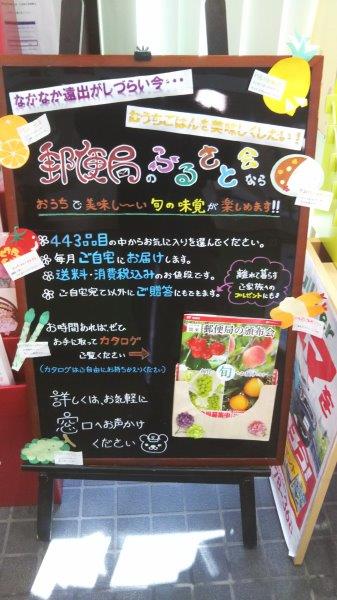 なかなか遠出がしづらい今・・・
おうちごはんを美味しくしたい!
郵便局のふるさと会なら
おうちで美味し〜い旬の味覚が楽しめます!!
443品目の中からお気に入りを選んでください。
毎月ご自宅にお届けします。
送料・消費税込みのお値段です。
ご自宅宛て以外にご贈答にもできます。
離れて暮らす
ご家族への
プレゼントにも
お時間あればぜひ
お手に取ってカタログ
ご覧ください
(カタログはご自由にお持ちかえりください)
郵便局の頒布会
旬
詳しくは、お気軽に
窓口へお声かけ
ください